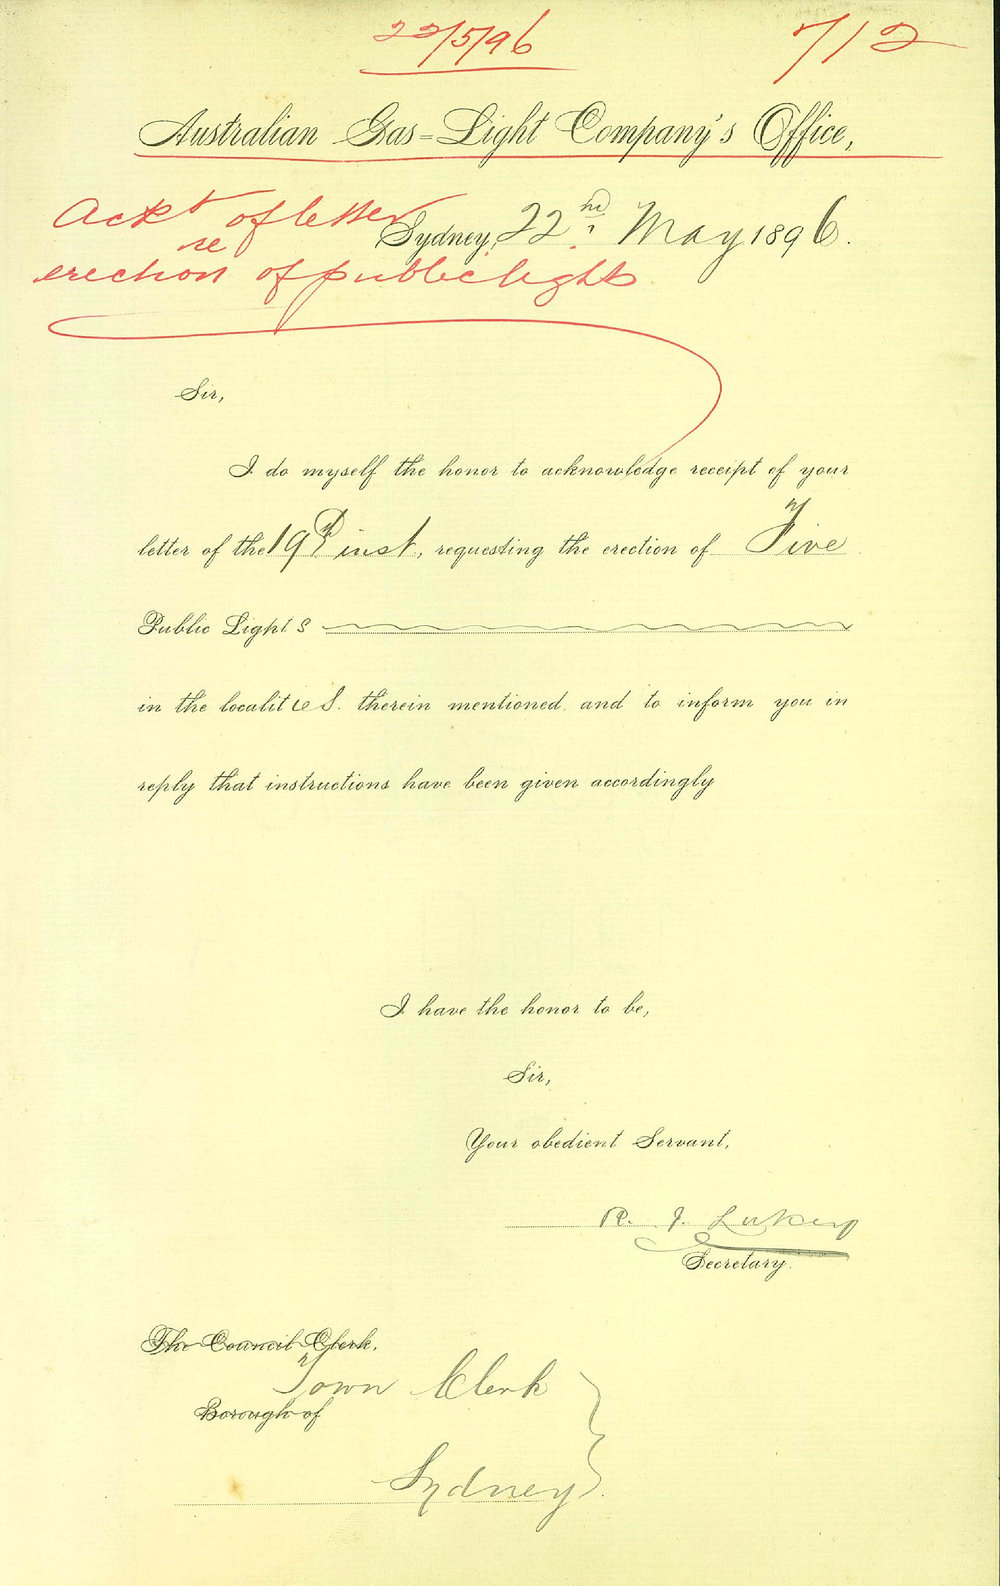 22/5/96
712
Australian Gas-Light Company's Office,
Ackt of letter
re
erection of public lights
Sydney, 22nd May 1896.
Sir,
I do myself the honor to acknowledge receipt of your
letter of the 19th inst, requesting the erection of Five
Public Lights
in the localities. therein mentioned and to inform you in
reply that instructions have been given accordingly
I have the honor to be,
Sir,
Your obedient Servant,
R. J. Lukey
Secretary.
The Council Clerk,
Town Clerk
Borough of
Sydney.